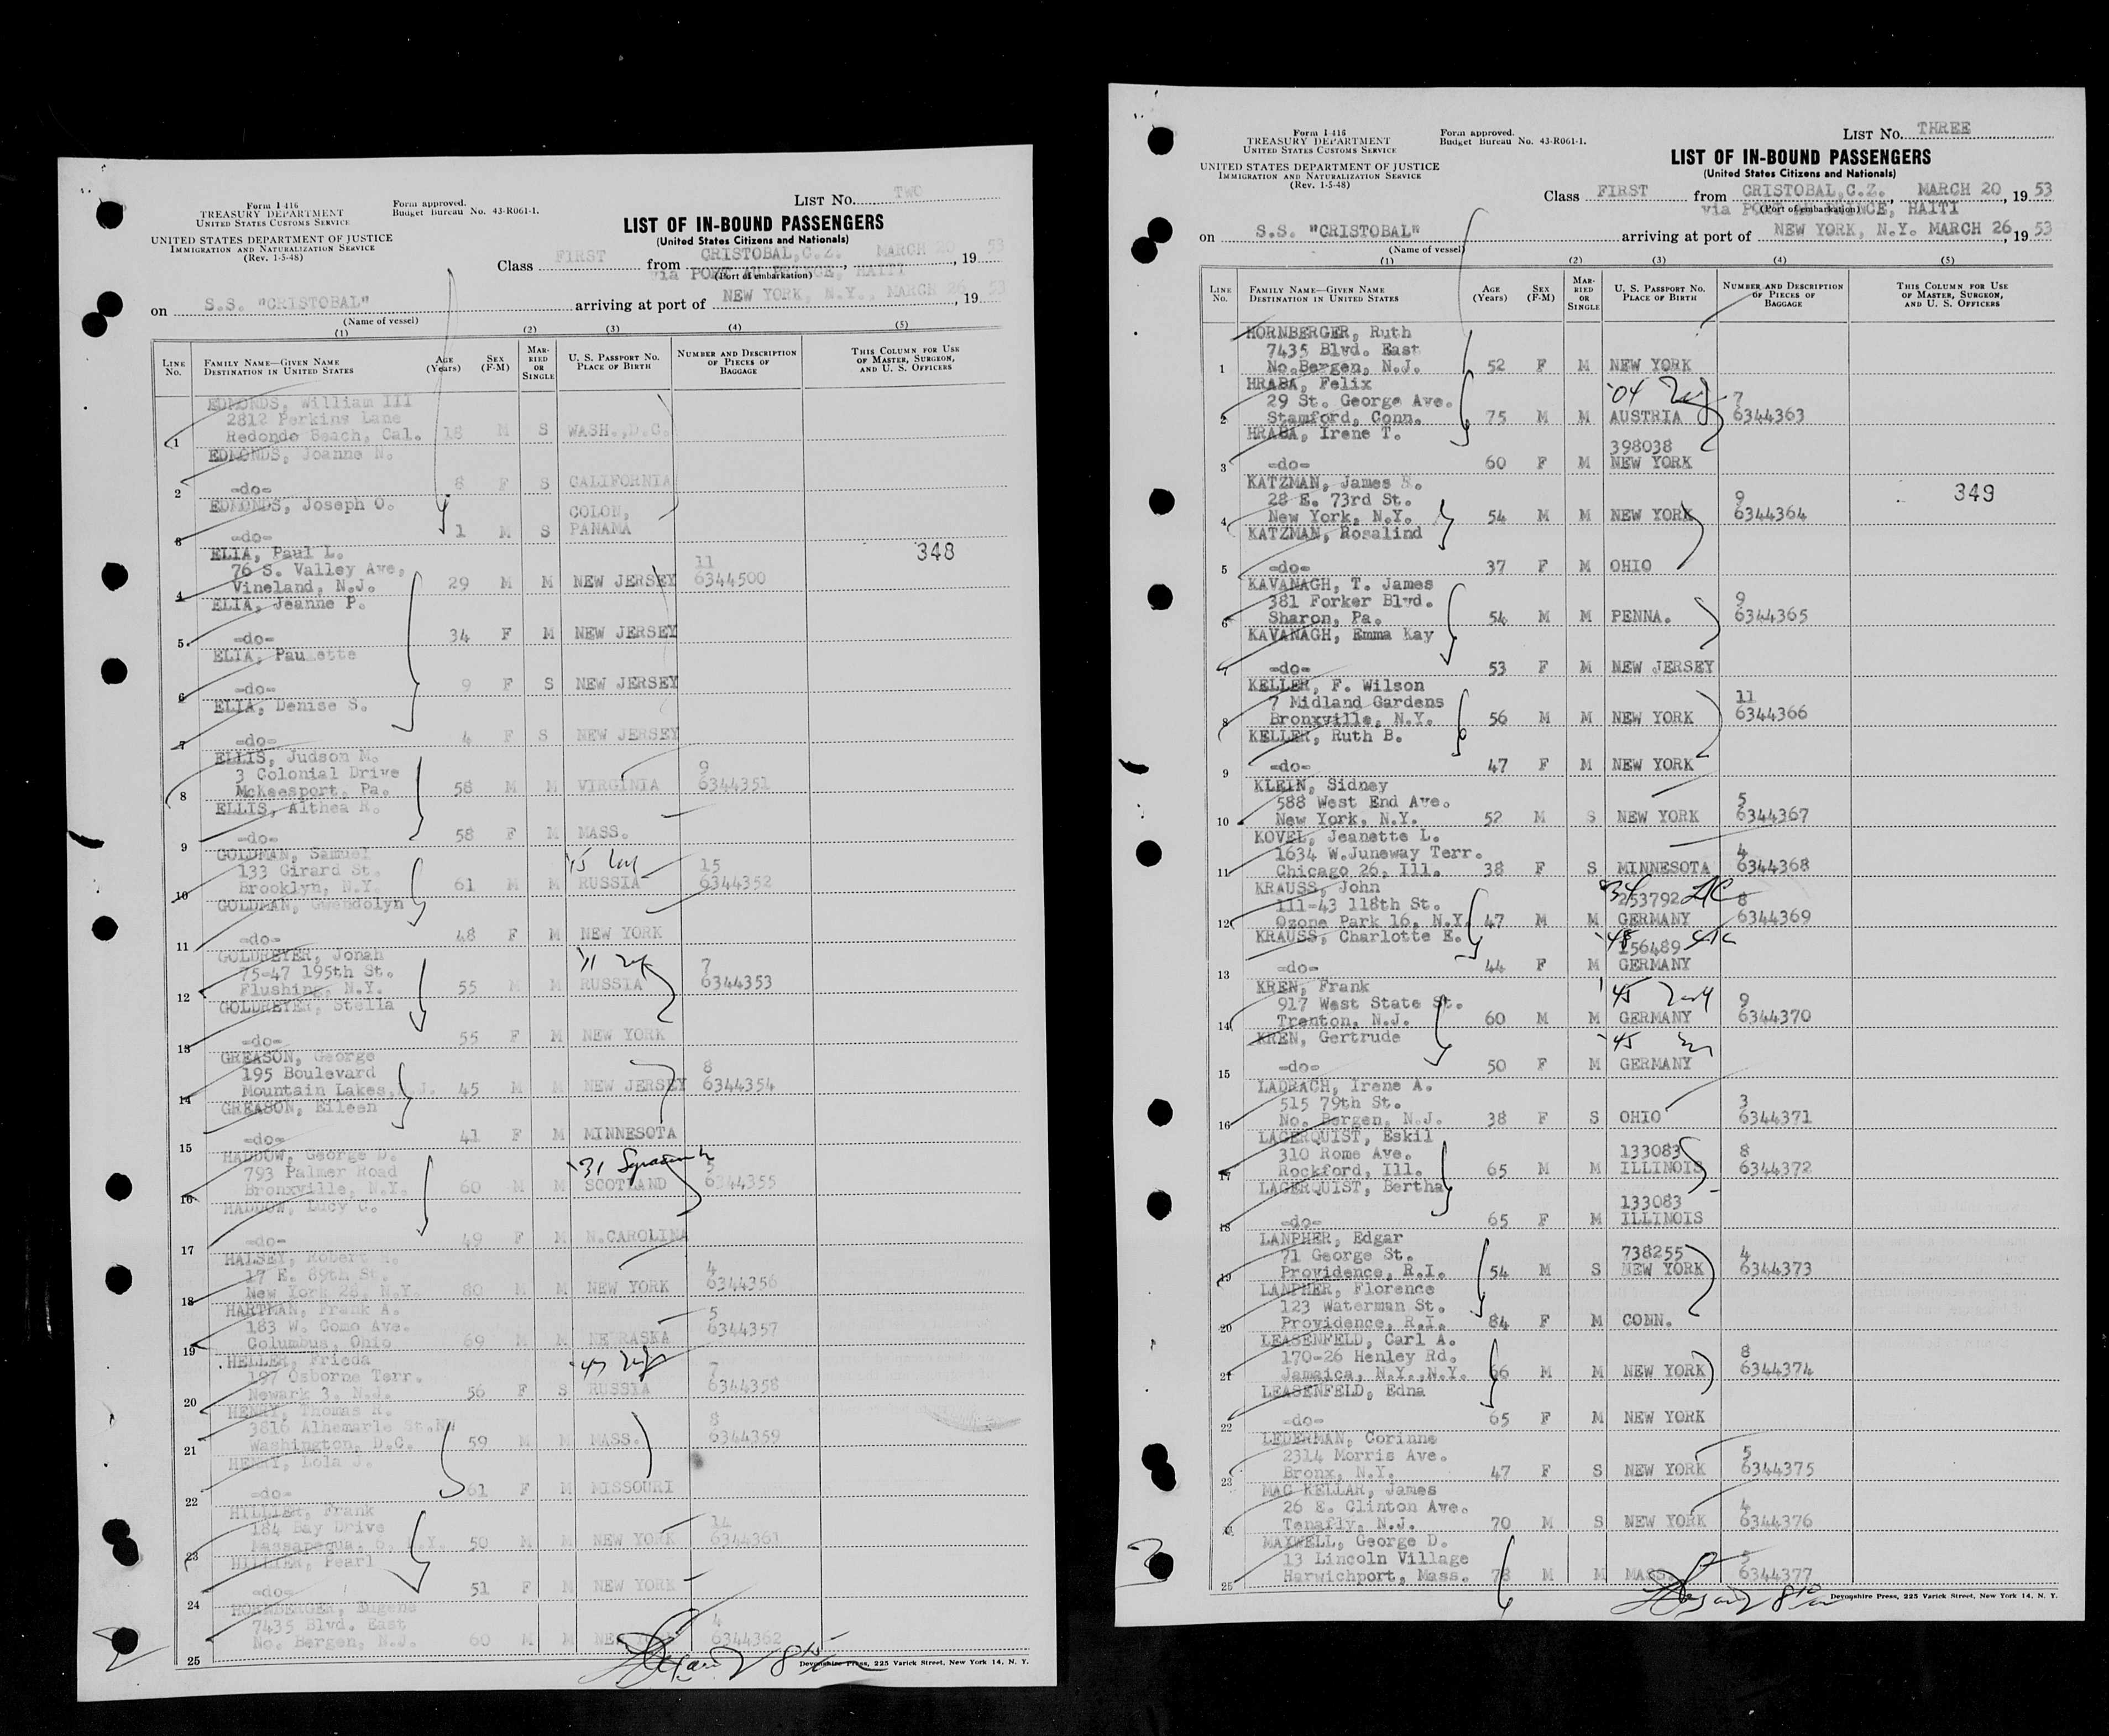 Form I-416
TREASURY DEPARTMENT
UNITED STATES CUSTOMS SERVICE
UNITED STATES DEPARTMENT OF JUSTICE
IMMIGRATION AND NATURALIZATION SERVICE
(Rev. 1-5-48)
Form approved.
Budget Bureau No. 43-R061-1.
LIST NO. TWO
LIST OF IN-BOUND PASSENGERS
(United States Citizens and Nationals)
Class FIRST from CRISTOBAL,C.Z., MARCH 20, 19 53
via PORT AU PRINCE, HAITI
(Port of embarkation)
on S.S. "CRISTOBAL" arriving at port of NEW YORK, N.Y., MARCH 26, 19 53
(Name of vessel)
(1) (2) (3) (4) (5)
LINE No. FAMILY NAME—GIVEN NAME DESTINATION IN UNITED STATES AGE (Years) SEX (F-M) MARRIED OR SINGLE U. S. PASSPORT NO. PLACE OF BIRTH NUMBER AND DESCRIPTION OF PIECES OF BAGGAGE THIS COLUMN FOR USE OF MASTER, SURGEON, AND U. S. OFFICERS
EDMONDS, William III
2812 Perkins Lane
1 Redondo Beach, Cal. 18 M S WASH.,D.C.
EDMONDS, Joanne N.
2 -do- 8 F S CALIFORNIA
EDMONDS, Joseph O. COLON,
3 -do- 1 M S PANAMA
348
ELIA, Paul L.
76 S. Valley Ave, 11
4 Vineland, N.J. 29 M M NEW JERSEY 6344500
ELIA, Jeanne P.
5 -do- 34 F M NEW JERSEY
ELIA, Paulette
6 -do- 9 F S NEW JERSEY
ELIA, Denise S.
7 -do- 4 F S NEW JERSEY
ELLIS, Judson M.
3 Colonial Drive 9
8 McKeesport, Pa. 58 M M VIRGINIA 6344351
ELLIS, Althea R.
9 -do- 58 F M MASS.
GOLDMAN, Samuel
133 Girard St. '15 15
10 Brooklyn, N.Y. 61 M M RUSSIA 6344352
GOLDMAN, Gwendolyn
11 -do- 48 F M NEW YORK
GOLDREYER, Jonah
75-47 195th St. '11 7
12 Flushing, N.Y. 55 M M RUSSIA 6344353
GOLDREYER, Stella
13 -do- 55 F M NEW YORK
GREASON, George
195 Boulevard 8
14 Mountain Lakes, N.J. 45 M M NEW JERSEY 6344354
GREASON, Eileen
15 -do- 41 F M MINNESOTA
HADDOW, George D.
793 Palmer Road '31 5
16 Bronxville, N.Y. 60 M M SCOTLAND 6344355
HADDOW, Lucy C.
17 -do- 49 F M N.CAROLINA
HALSEY, Robert H.
17 E. 89th St. 4
18 New York 28, N.Y. 80 M M NEW YORK 6344356
HARTMAN, Frank A.
183 W. Como Ave. 5
19 Columbus, Ohio 69 M M NEBRASKA 6344357
HELLER, Frieda
197 Osborne Terr. '47 7
20 Newark 3, N.J. 56 F S RUSSIA 6344358
HENRY, Thomas R.
3816 Alhemarle St.NW 8
21 Washington, D.C. 59 M M MASS. 6344359
HENRY, Lola J.
22 -do- 61 F M MISSOURI
HILLIER, Frank
184 Bay Drive 14
23 Massapequa, N.Y. 50 M M NEW YORK 6344361
HILLIER, Pearl
24 -do- 51 F M NEW YORK
HORNBERGER, Eugene
7435 Blvd. East 4
25 No. Bergen, N.J. 60 M M NEW YORK 6344362
Devonshire Press, 225 Varick Street, New York 14, N. Y.
Form I-416
TREASURY DEPARTMENT
UNITED STATES CUSTOMS SERVICE
UNITED STATES DEPARTMENT OF JUSTICE
IMMIGRATION AND NATURALIZATION SERVICE
(Rev. 1-5-48)
Form approved.
Budget Bureau No. 43-R061-1.
LIST NO. THREE
LIST OF IN-BOUND PASSENGERS
(United States Citizens and Nationals)
Class FIRST from CRISTOBAL,C.Z., MARCH 20, 19 53
via PORT AU PRINCE, HAITI
(Port of embarkation)
on S.S. "CRISTOBAL" arriving at port of NEW YORK, N.Y. MARCH 26, 19 53
(Name of vessel)
(1) (2) (3) (4) (5)
LINE No. FAMILY NAME—GIVEN NAME DESTINATION IN UNITED STATES AGE (Years) SEX (F-M) MARRIED OR SINGLE U. S. PASSPORT NO. PLACE OF BIRTH NUMBER AND DESCRIPTION OF PIECES OF BAGGAGE THIS COLUMN FOR USE OF MASTER, SURGEON, AND U. S. OFFICERS
HORNBERGER, Ruth
7435 Blvd. East
1 No.Bergen, N.J. 52 F M NEW YORK
HRABA, Felix
29 St. George Ave. '04 7
2 Stamford, Conn. 75 M M AUSTRIA 6344363
HRABA, Irene T. 398038
3 -do- 60 F M NEW YORK
KATZMAN, James S.
28 E. 73rd St. 9 349
4 New York, N.Y. 54 M M NEW YORK 6344364
KATZMAN, Rosalind
5 -do- 37 F M OHIO
KAVANAGH, T. James
381 Forker Blvd. 9
6 Sharon, Pa. 54 M M PENNA. 6344365
KAVANAGH, Emma Kay
7 -do- 53 F M NEW JERSEY
KELLER, F. Wilson
7 Midland Gardens 11
8 Bronxville, N.Y. 56 M M NEW YORK 6344366
KELLER, Ruth B.
9 -do- 47 F M NEW YORK
KLEIN, Sidney
588 West End Ave. 5
10 New York, N.Y. 52 M S NEW YORK 6344367
KOVEL, Jeanette L.
1634 W.Juneway Terr. 4
11 Chicago 26, Ill. 38 F S MINNESOTA 6344368
KRAUSS, John '34
111-43 118th St. 253792 8
12 Ozone Park 16, N.Y. 47 M M GERMANY 6344369
KRAUSS, Charlotte E. 156489
13 -do- 44 F M GERMANY
KREN, Frank
917 West State St. '45 9
14 Trenton, N.J. 60 M M GERMANY 6344370
KREN, Gertrude '45
15 -do- 50 F M GERMANY
LADRACH, Irene A.
515 79th St. 3
16 No. Bergen, N.J. 38 F S OHIO 6344371
LAGERQUIST, Eskil
310 Rome Ave. 133083 8
17 Rockford, Ill. 65 M M ILLINOIS 6344372
LAGERQUIST, Bertha 133083
18 -do- 65 F M ILLINOIS
LANPHER, Edgar
71 George St. 738255 4
19 Providence, R.I. 54 M S NEW YORK 6344373
LANPHER, Florence
123 Waterman St.
20 Providence, R.I. 84 F M CONN.
LEASENFELD, Carl A.
170-26 Henley Rd. 8
21 Jamaica, N.Y.,N.Y. 66 M M NEW YORK 6344374
LEASENFELD, Edna
22 -do- 65 F M NEW YORK
LEDERMAN, Corinne
2314 Morris Ave. 5
23 Bronx, N.Y. 47 F S NEW YORK 6344375
MAC KELLAR, James
26 E. Clinton Ave. 4
24 Tenafly, N.J. 70 M S NEW YORK 6344376
MAXWELL, George D.
13 Lincoln Village 5
25 Harwichport, Mass. 78 M M MASS. 6344377
Devonshire Press, 225 Varick Street, New York 14, N. Y.